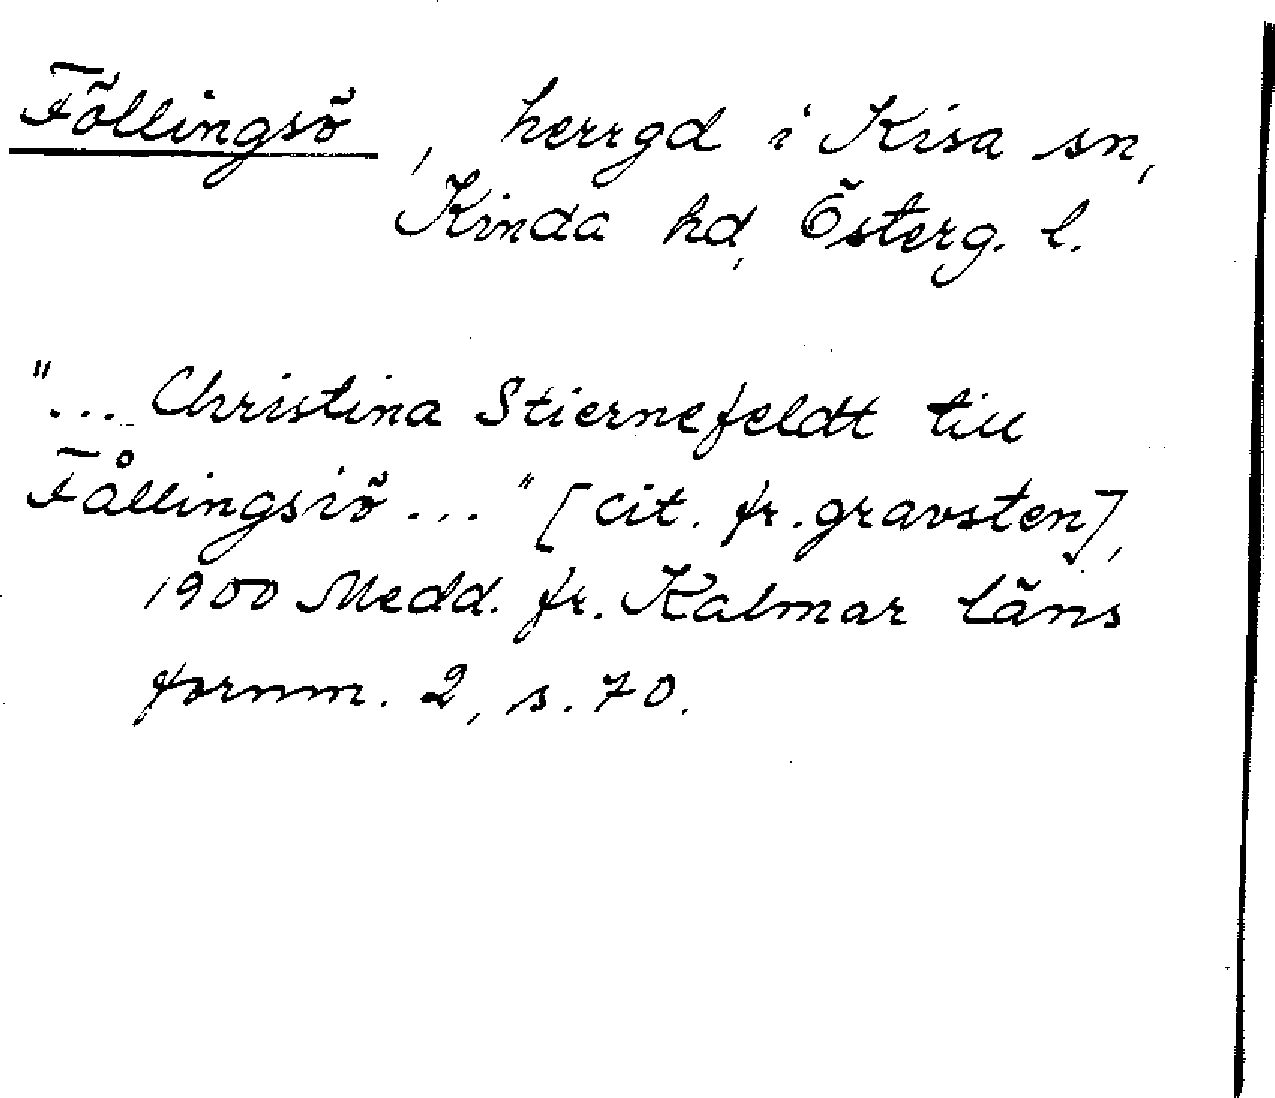 Föllingsö, herrgd i Kisa sn,
Kinda hd, Österg. l.
"... Christina Stiernefeldt till
Fållingsiö ..." [cit. fr. gravsten],
1900 Medd. fr. Kalmar läns
fornm. 2, s. 70.